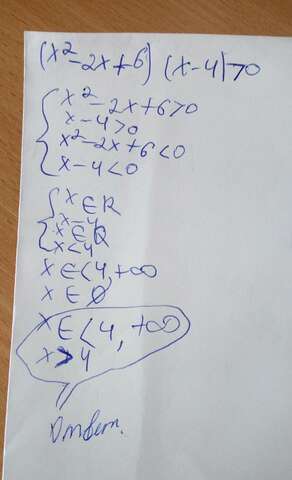 (x²-2x+6) (x-4)>0
{x²-2x+6>0
x-4>0
x²-2x+6<0
x-4<0
{x∈R
x-4
{x∈Q
x<4
x∈<4,+∞
x∈∅
x∈<4,+∞
x>4
Ответ.